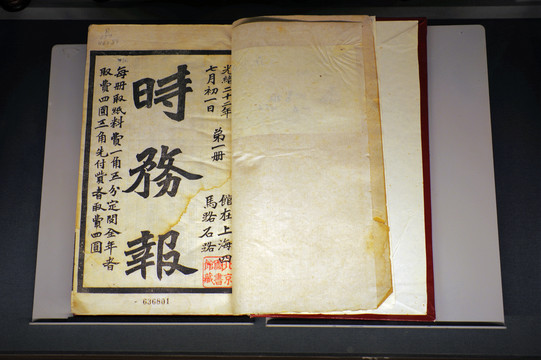 光緒二十二年
七月初一日
第一册
館在上海四
馬路石路
時務報
每册取紙料費一角五分定閱全年者
取費四圓三角先付貲者取費四圓
636801